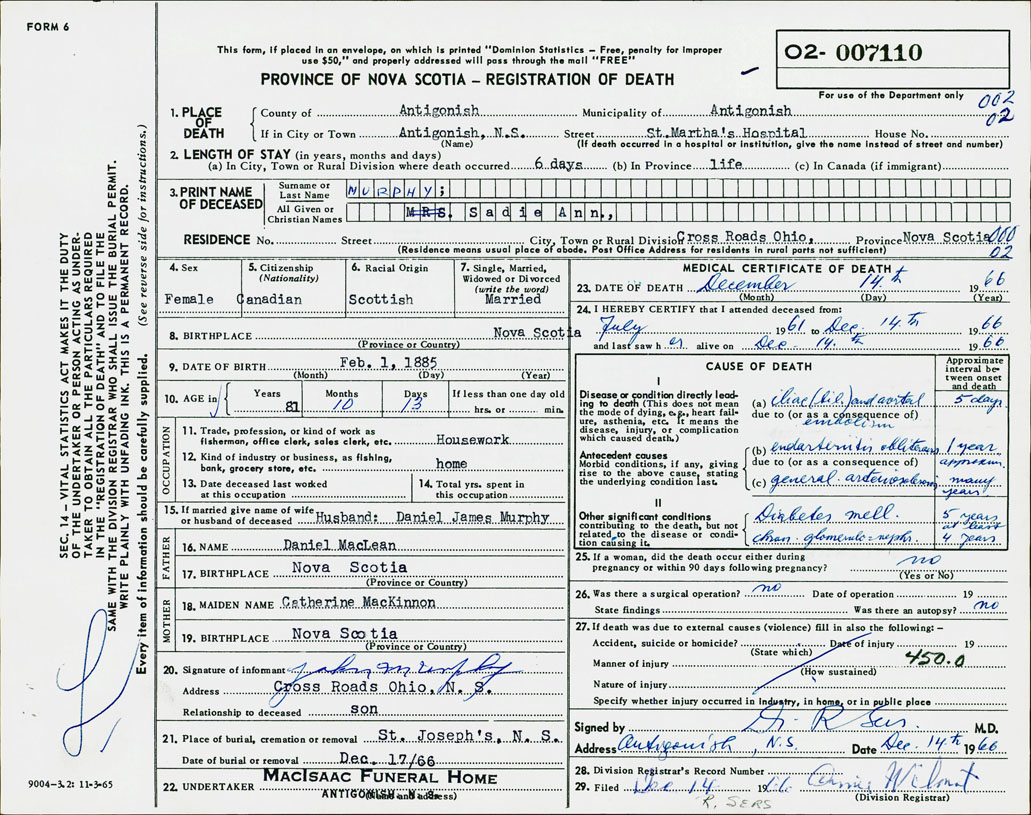 FORM 6
This form, if placed in an envelope, on which is printed "Dominion Statistics – Free, penalty for improper
use $50," and properly addressed will pass through the mail "FREE"
PROVINCE OF NOVA SCOTIA – REGISTRATION OF DEATH
02- 007110
For use of the Department only
002
02
1. PLACE OF DEATH
County of Antigonish Municipality of Antigonish
If in City or Town Antigonish, N.S. Street St.Martha's Hospital House No.
(Name) (If death occurred in a hospital or institution, give the name instead of street and number)
2. LENGTH OF STAY (in years, months and days)
(a) In City, Town or Rural Division where death occurred 6 days (b) In Province life (c) In Canada (if immigrant)
3. PRINT NAME OF DECEASED
Surname or Last Name MURPHY;
All Given or Christian Names MRS. Sadie Ann.,
RESIDENCE No. Street City, Town or Rural Division Cross Roads Ohio, Province Nova Scotia 000
(Residence means usual place of abode. Post Office Address for residents in rural parts not sufficient) 02
4. Sex
Female
5. Citizenship (Nationality)
Canadian
6. Racial Origin
Scottish
7. Single, Married, Widowed or Divorced (write the word)
Married
8. BIRTHPLACE Nova Scotia
(Province or Country)
9. DATE OF BIRTH Feb. 1, 1885
(Month) (Day) (Year)
10. AGE in Years 81 Months 10 Days 13 If less than one day old
hrs. or min.
OCCUPATION
11. Trade, profession, or kind of work as
fisherman, office clerk, sales clerk, etc. Housework
12. Kind of industry or business, as fishing,
bank, grocery store, etc. home
13. Date deceased last worked
at this occupation
14. Total yrs. spent in
this occupation
15. If married give name of wife
or husband of deceased Husband: Daniel James Murphy
FATHER
16. NAME Daniel MacLean
17. BIRTHPLACE Nova Scotia
(Province or Country)
MOTHER
18. MAIDEN NAME Catherine MacKinnon
19. BIRTHPLACE Nova Scotia
(Province or Country)
20. Signature of informant John Murphy
Address Cross Roads Ohio, N. S.
Relationship to deceased son
21. Place of burial, cremation or removal St. Joseph's, N. S.
Date of burial or removal Dec. 17/66
22. UNDERTAKER MacIsaac Funeral Home
ANTIGONISH, N. S.
(Name and address)
MEDICAL CERTIFICATE OF DEATH
23. DATE OF DEATH December 14.th 1966
(Month) (Day) (Year)
24. I HEREBY CERTIFY that I attended deceased from:
July 1961 to Dec. 14th 1966
and last saw h er alive on Dec. 14.th 1966
CAUSE OF DEATH
Approximate interval between onset and death
I
Disease or condition directly leading to death (This does not mean
the mode of dying, e.g., heart failure, asthenia, etc. It means the
disease, injury, or complication
which caused death.)
(a) iliac (bil.) and aortal 5 days
due to (or as a consequence of)
embolism
Antecedent causes
Morbid conditions, if any, giving
rise to the above cause, stating
the underlying condition last.
(b) endarteritis obliterans 1 year
due to (or as a consequence of) approxim.
(c) general arteriosclerosis many years
II
Other significant conditions
contributing to the death, but not
related to the disease or condition causing it.
Diabetes mell. 5 years
at least
chron. glomerulo-nephr. 4 years
25. If a woman, did the death occur either during
pregnancy or within 90 days following pregnancy? no
(Yes or No)
26. Was there a surgical operation? no Date of operation 19
State findings Was there an autopsy? no
27. If death was due to external causes (violence) fill in also the following: –
Accident, suicide or homicide? Date of injury 19
(State which)
Manner of injury 450.0
(How sustained)
Nature of injury
Specify whether injury occurred in industry, in home, or in public place
Signed by R Sers. M.D.
Address Antigonish, N.S. Date Dec. 14.th 1966
28. Division Registrar's Record Number
29. Filed Dec 14 1966
(Division Registrar)
R. SERS
SEC. 14 – VITAL STATISTICS ACT MAKES IT THE DUTY
OF THE UNDERTAKER OR PERSON ACTING AS UNDERTAKER TO OBTAIN ALL THE PARTICULARS REQUIRED
IN THE "REGISTRATION OF DEATH" AND TO FILE THE
SAME WITH THE DIVISION REGISTRAR WHO SHALL ISSUE THE BURIAL PERMIT.
WRITE PLAINLY WITH UNFADING INK. THIS IS A PERMANENT RECORD.
Every item of information should be carefully supplied. (See reverse side for instructions.)
9004-3.2: 11-3-65